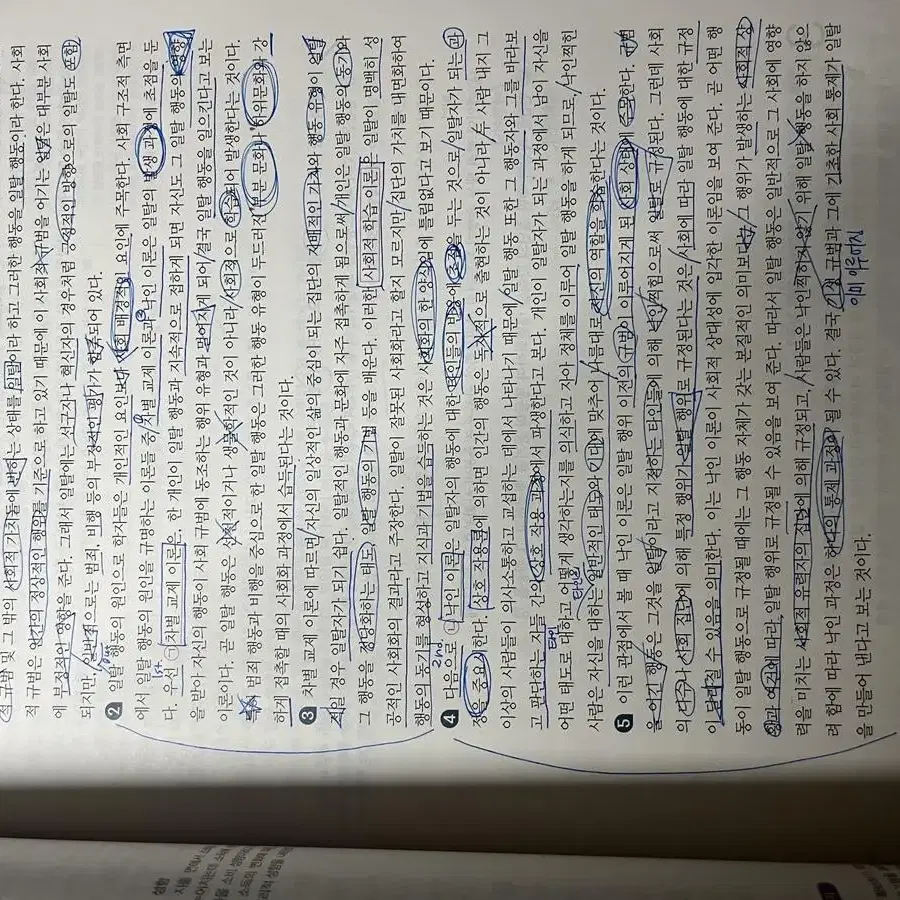 적 규범 및 그 밖의 사회적 가치들에 반하는 상태를 일탈이라 하고 그러한 행동을 일탈 행동이라 한다. 사회
적 규범은 정상적인 행위를 기준으로 하고 있기 때문에 이 사회적 규범을 어기는 일탈은 대부분 사회
에 부정적인 영향을 준다. 그래서 일탈에는 선구자나 혁신자의 경우처럼 긍정적인 방향으로의 일탈도 포함
되지만, 일반적으로는 범죄, 비행 등의 부정적인 평가가 함축되어 있다.
2 일탈 행동의 원인으로 학자들은 개인적인 요인보다 사회 배경적인 요인에 주목한다. 사회 구조적 측면
에서 일탈 행동의 원인을 규명하는 이론들 중 차별 교제 이론과 낙인 이론은 일탈의 발생 과정에 초점을 둔
다. 우선 1st ㉠차별 교제 이론은 한 개인이 일탈 행동과 지속적으로 접하게 되면 자신도 그 일탈 행동의 영향
을 받아 자신의 행동이 사회 규범에 동조하는 행위 유형과 멀어지게 되어 결국 일탈 행동을 일으킨다고 보는
이론이다. 곧 일탈 행동은 선천적이거나 생물학적인 것이 아니라 사회적으로 학습되어 발생한다는 것이다.
특히 범죄 행동과 비행을 중심으로 한 일탈 행동은 그러한 행동 유형이 두드러진 부분 문화나 하위문화와 강
하게 접촉할 때의 사회화 과정에서 습득된다는 것이다.
3 차별 교제 이론에 따르면 자신의 일상적인 삶의 중심이 되는 집단의 지배적인 가치와 행동 유형이 일탈
적일 경우 일탈자가 되기 쉽다. 일탈적인 행동과 문화에 자주 접촉하게 됨으로써 개인은 일탈 행동의 동기와
그 행동을 정당화하는 태도, 일탈 행동의 기법 등을 배운다. 이러한 사회적 학습 이론은 일탈이 명백히 성
공적인 사회화의 결과라고 주장한다. 일탈이 잘못된 사회화라고 할지 모르지만 집단의 가치를 내면화하여
행동의 동기를 형성하고 지식과 기법을 습득하는 것은 사회화의 한 양식임에 틀림없다고 보기 때문이다.
4 다음으로 2nd ㉡낙인 이론은 일탈자의 행동에 대한 타인들의 반응에 초점을 두는 것으로 일탈자가 되는 과
정을 중요시한다. 상호 작용론에 의하면 인간의 행동은 독자적으로 출현하는 것이 아니라 두 사람 내지 그
이상의 사람들이 의사소통하고 교섭하는 데에서 나타나기 때문에 일탈 행동 또한 그 행동자와 그를 바라보
고 판단하는 자들 타인 간의 상호 작용 과정에서 파생한다고 본다. 개인이 일탈자가 되는 과정에서 남이 자신을
어떤 태도로 대하고 어떻게 생각하는지를 의식하고 자아 정체를 이루어 일탈 행동을 하게 되므로, 낙인찍힌
사람은 자신을 대하는 일반적인 태도와 기대에 맞추어 나름대로 자신의 역할을 학습한다는 것이다.
5 이런 관점에서 볼 때 낙인 이론은 일탈 행위 이전의 규범이 이루어지게 된 사회 상태에 주목한다. 규범
을 어긴 행동은 그것을 일탈이라고 지정하는 타인들에 의해 낙인찍힘으로써 일탈로 규정된다. 그런데 사회
의 다수나 사회 집단에 의해 특정 행위가 일탈 행위로 규정된다는 것은 사회에 따라 일탈 행동에 대한 규정
이 달라질 수 있음을 의미한다. 이는 낙인 이론이 사회적 상대성에 입각한 이론임을 보여 준다. 곧 어떤 행
동이 일탈 행동으로 규정될 때에는 그 행동 자체가 갖는 본질적인 의미보다는 그 행위가 발생하는 사회적 상
황과 여건에 따라 일탈 행위로 규정될 수 있음을 보여 준다. 따라서 일탈 행동은 일반적으로 그 사회에 영향
력을 미치는 사회적 유력자의 집단에 의해 규정되고, 사람들은 낙인찍히지 않기 위해 일탈 행동을 하지 않으
려 함에 따라 낙인 과정은 하나의 통제 과정이 될 수 있다. 결국 기existing 규범과 그에 기초한 사회 통제가 일탈
을 만들어 낸다고 보는 것이다.
이미 이루어진